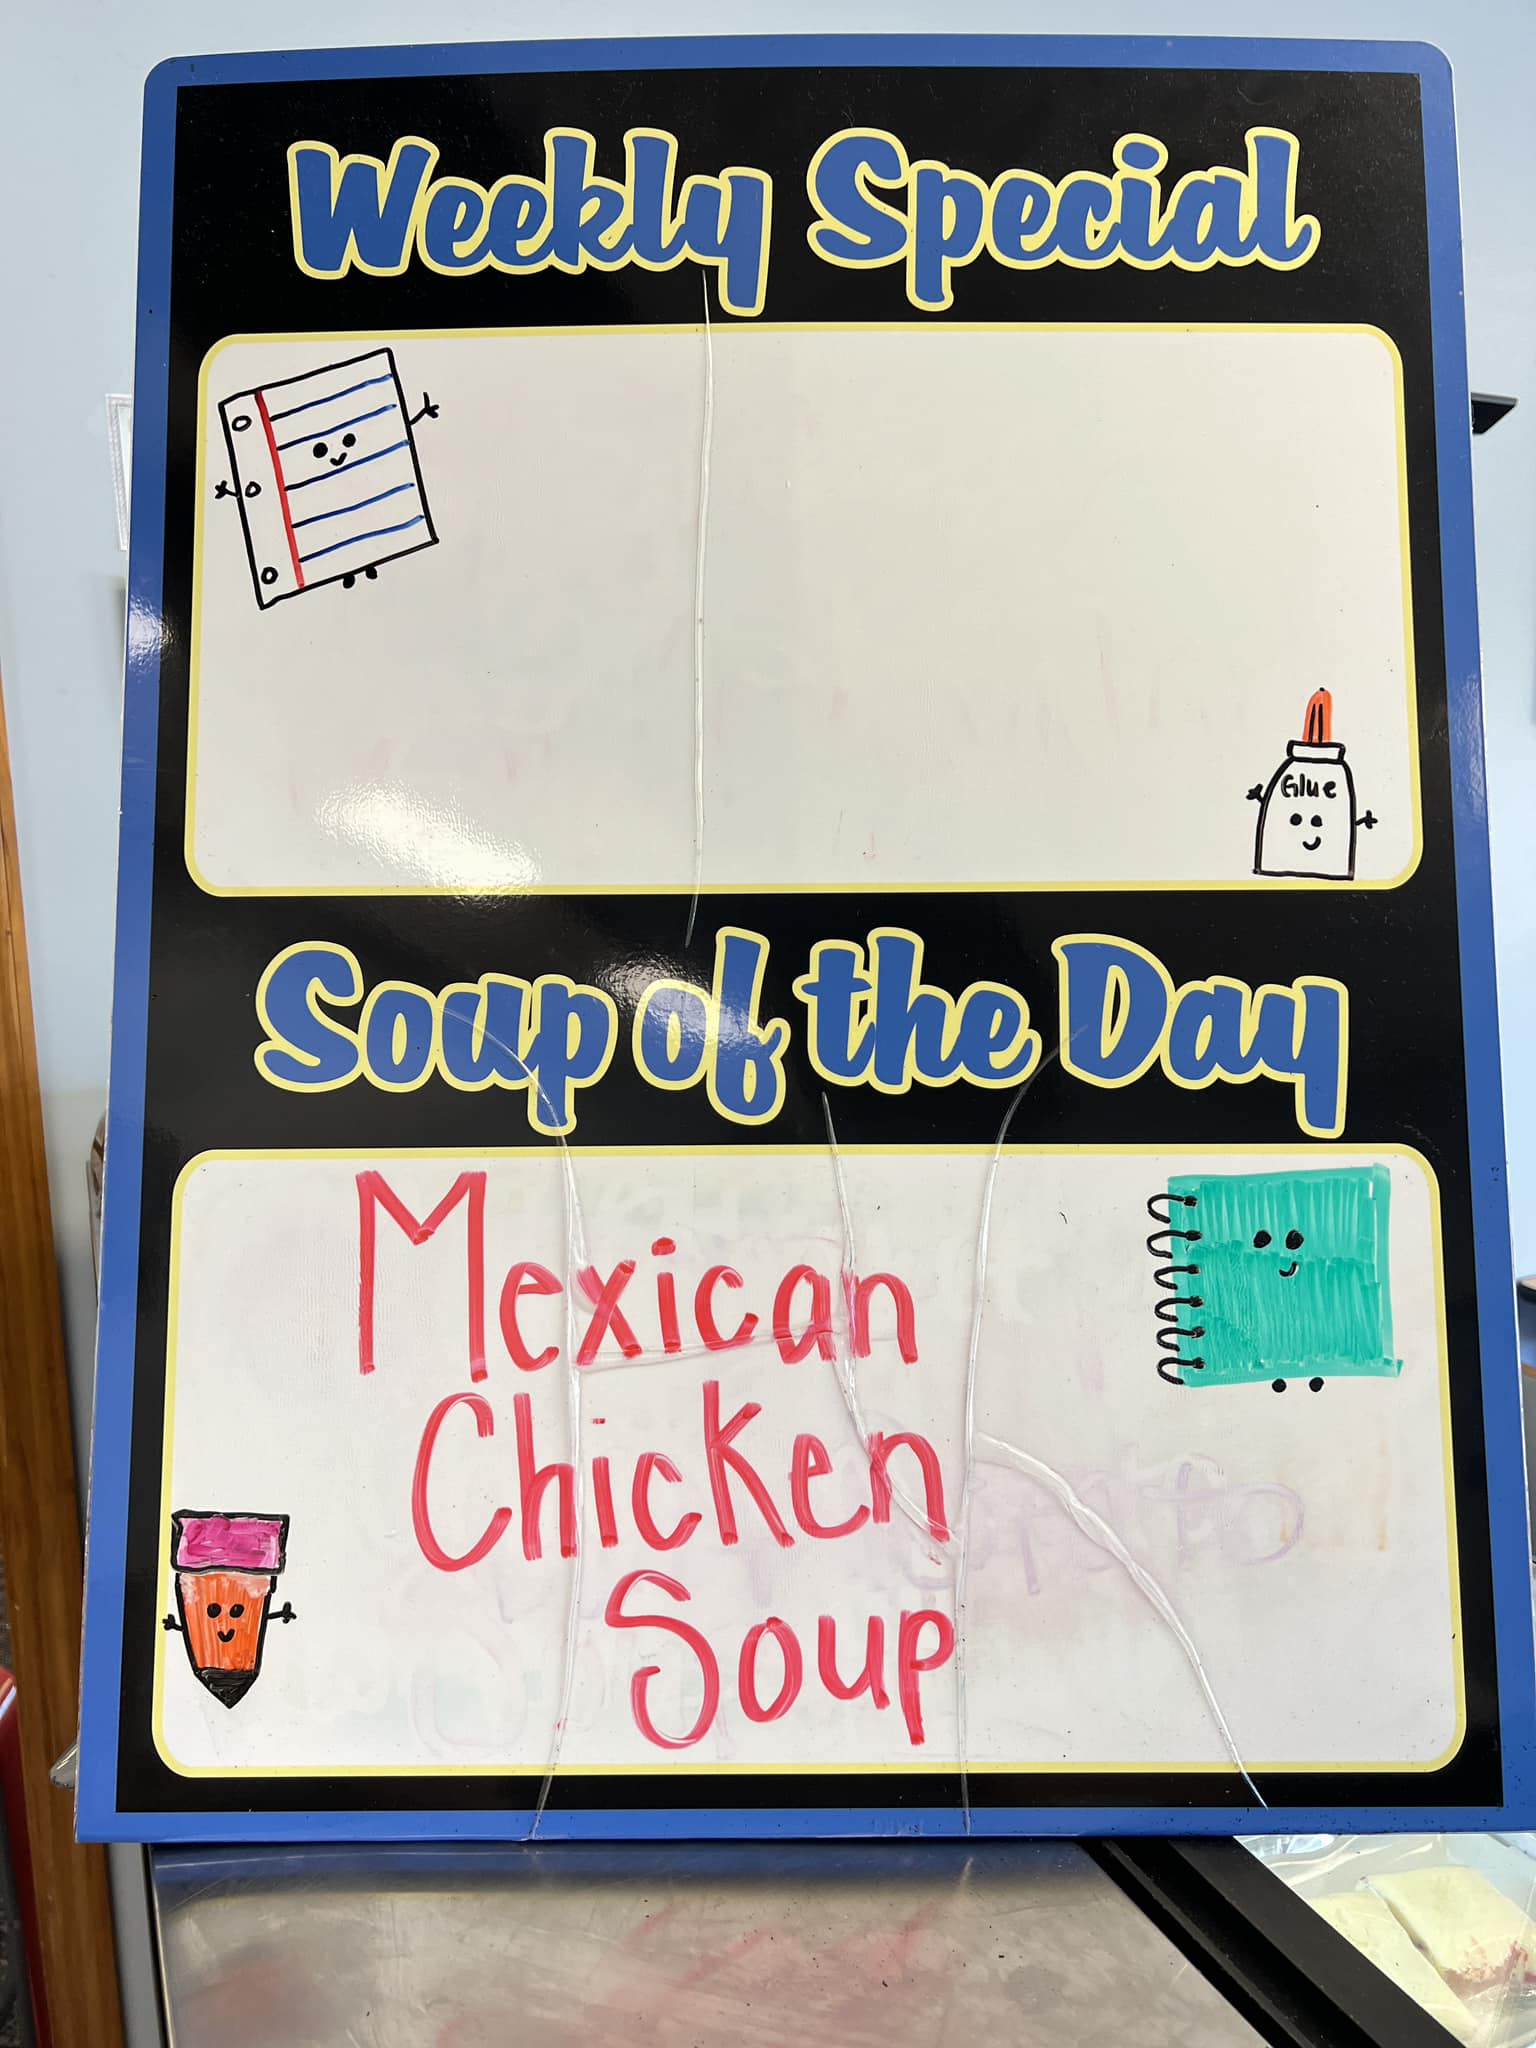 Weekly Special
Glue
Soup of the Day
Mexican
Chicken
Soup